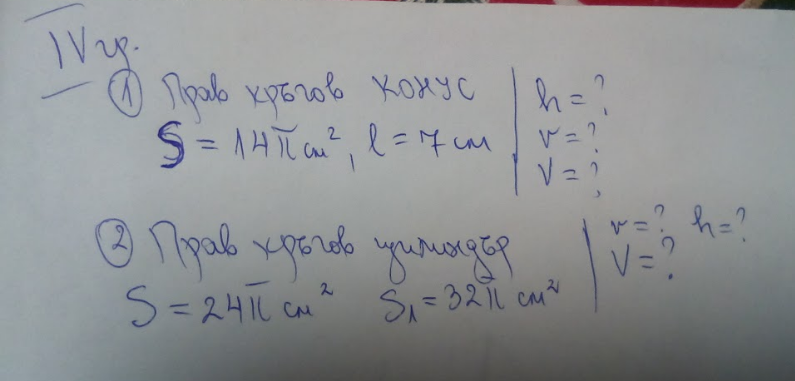 IV гр.
① Прав кръгов конус
S = 14π см², l = 7 см
h = ?
r = ?
V = ?
② Прав кръгов цилиндър
S = 24π см² S₁ = 32π см²
r = ? h = ?
V = ?